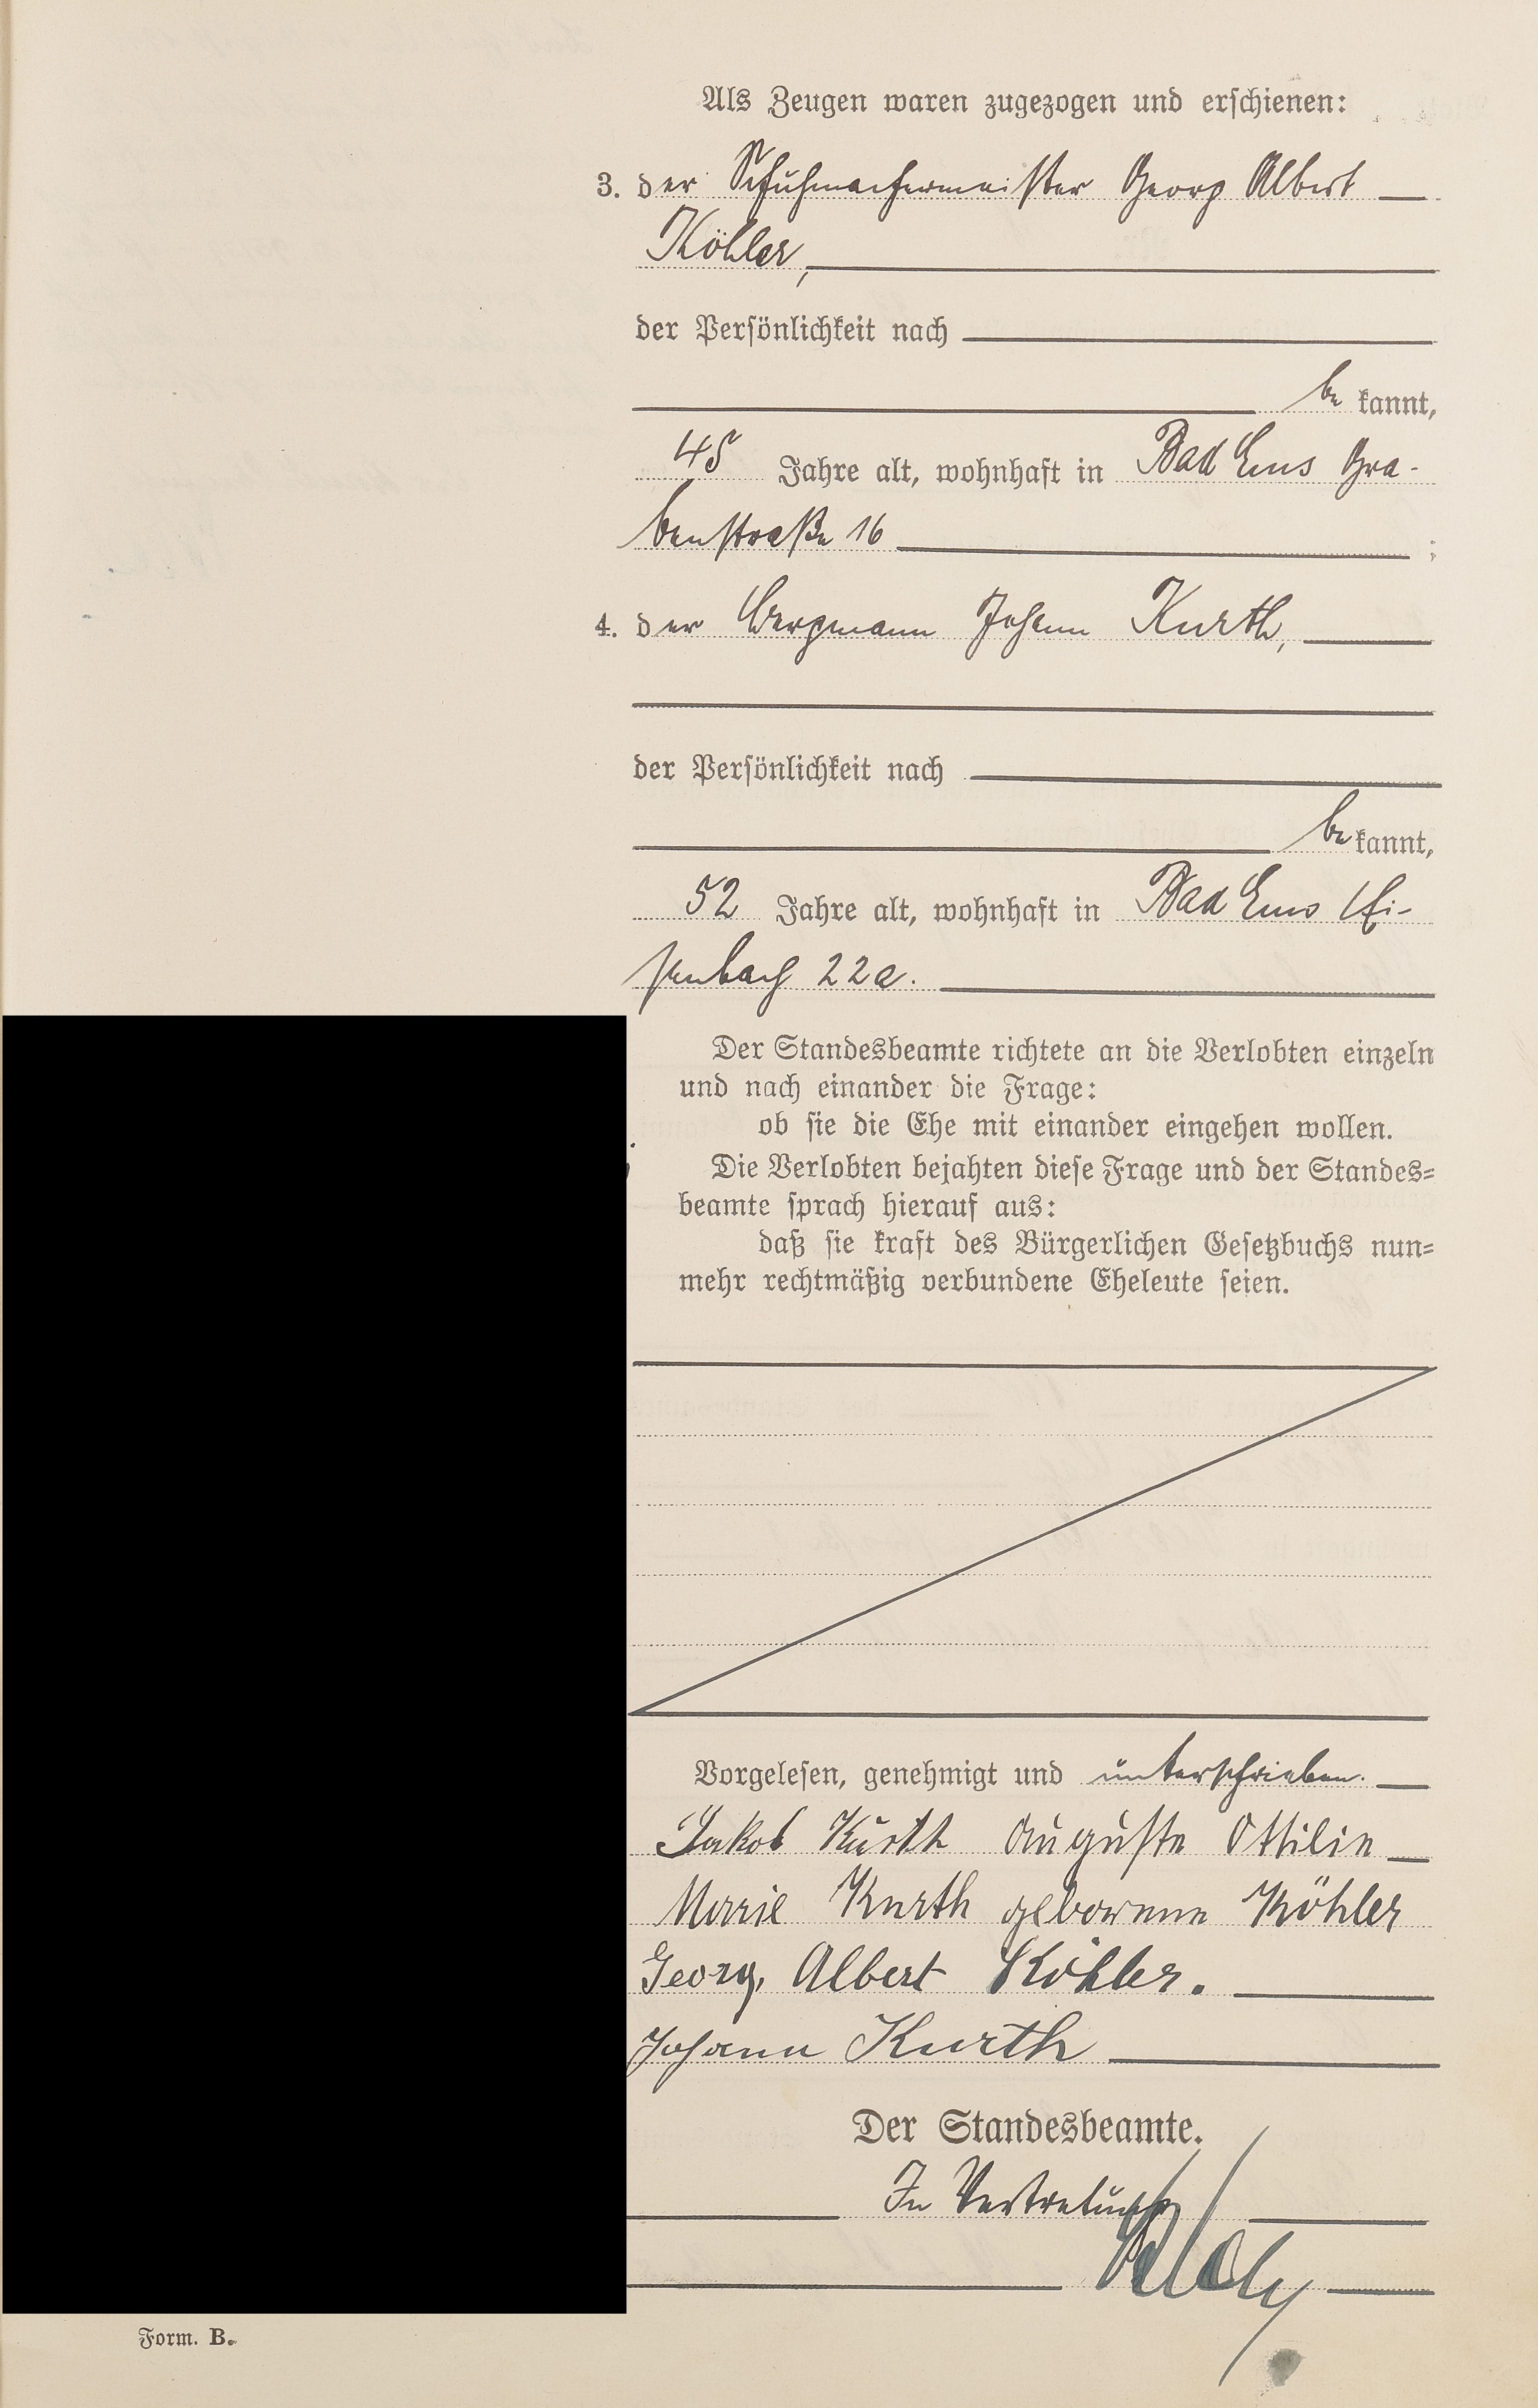 Als Zeugen waren zugezogen und erschienen:
3. der Schuhmachermeister Georg Albert
Köhler,
der Persönlichkeit nach
be kannt,
45 Jahre alt, wohnhaft in Bad Ems Gra-
benstraße 16 ;
4. der Bergmann Johann Kurth,
der Persönlichkeit nach
be kannt,
52 Jahre alt, wohnhaft in Bad Ems
22a.
Der Standesbeamte richtete an die Verlobten einzeln
und nach einander die Frage:
ob sie die Ehe mit einander eingehen wollen.
Die Verlobten bejahten diese Frage und der Standes=
beamte sprach hierauf aus:
daß sie kraft des Bürgerlichen Gesetzbuchs nun=
mehr rechtmäßig verbundene Eheleute seien.
Vorgelesen, genehmigt und unterschrieben.
Jakob Kurth Auguste Ottilie
Marie Kurth geborenne Köhler
Georg Albert Köhler.
Johann Kurth
Der Standesbeamte.
In Vertretung
Form. B.